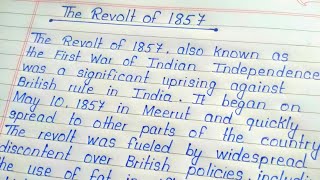 The Revolt of 1857
The Revolt of 1857, also known as
the First War of Indian Independence
was a significant uprising against
British rule in India. It began on
May 10, 1857 in Meerut and quickly
spread to other parts of the country
The revolt was fueled by widespread
discontent over British policies, includ
the use of fat in